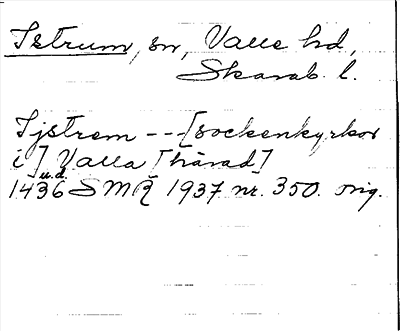 Istrum, sn, Valle hd,
Skarab. l.
Ijstrem --- [sockenkyrkor
i] Valla [härad]
1436 u.d. SMR 1937 nr. 350. orig.